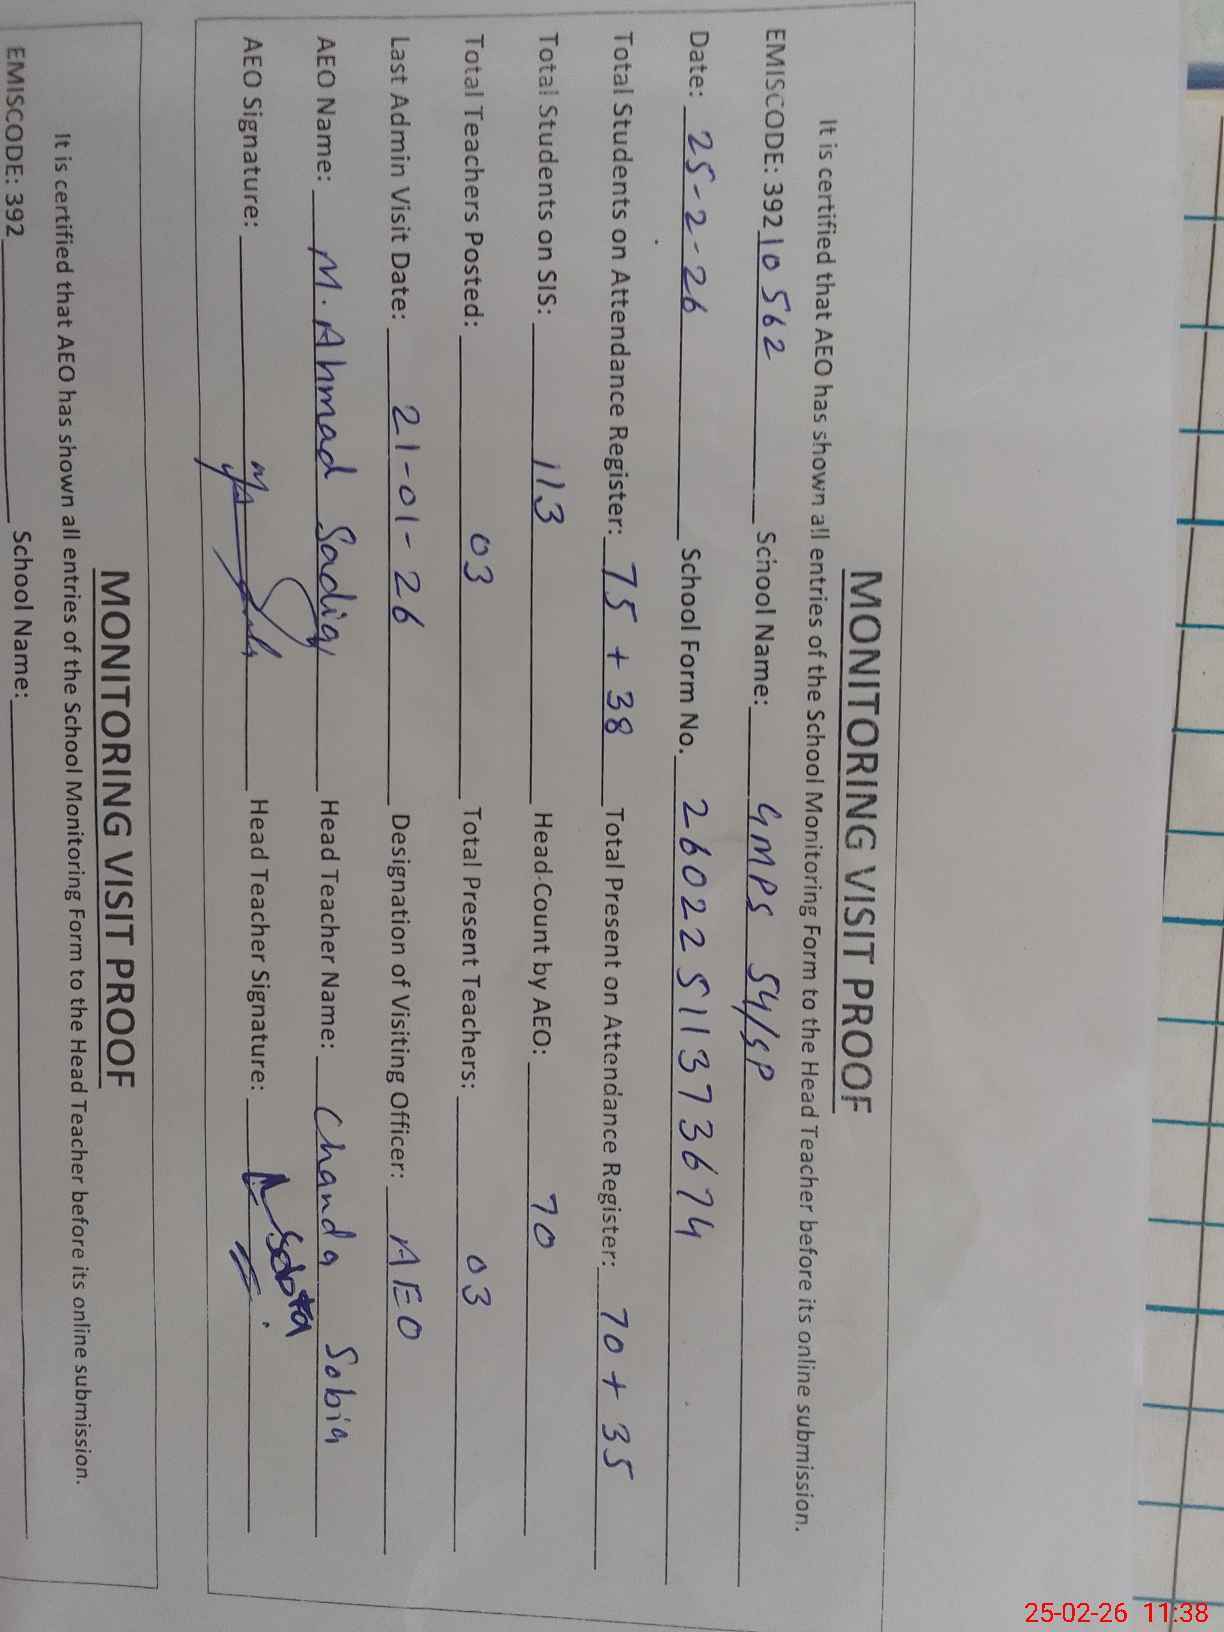 MONITORING VISIT PROOF
It is certified that AEO has shown all entries of the School Monitoring Form to the Head Teacher before its online submission.
EMISCODE: 39210562 School Name: GMPS 54/SP
Date: 25-2-26 School Form No. 26022511373674
Total Students on Attendance Register: 75 + 38 Total Present on Attendance Register: 70 + 35
Total Students on SIS: 113 Head Count by AEO: 70
Total Teachers Posted: 03 Total Present Teachers: 03
Last Admin Visit Date: 21-01-26 Designation of Visiting Officer: AEO
AEO Name: M. Ahmad Sadiq Head Teacher Name: Chanda Sobia
AEO Signature: Head Teacher Signature:
MONITORING VISIT PROOF
It is certified that AEO has shown all entries of the School Monitoring Form to the Head Teacher before its online submission.
EMISCODE: 392 School Name:
25-02-26 11:38